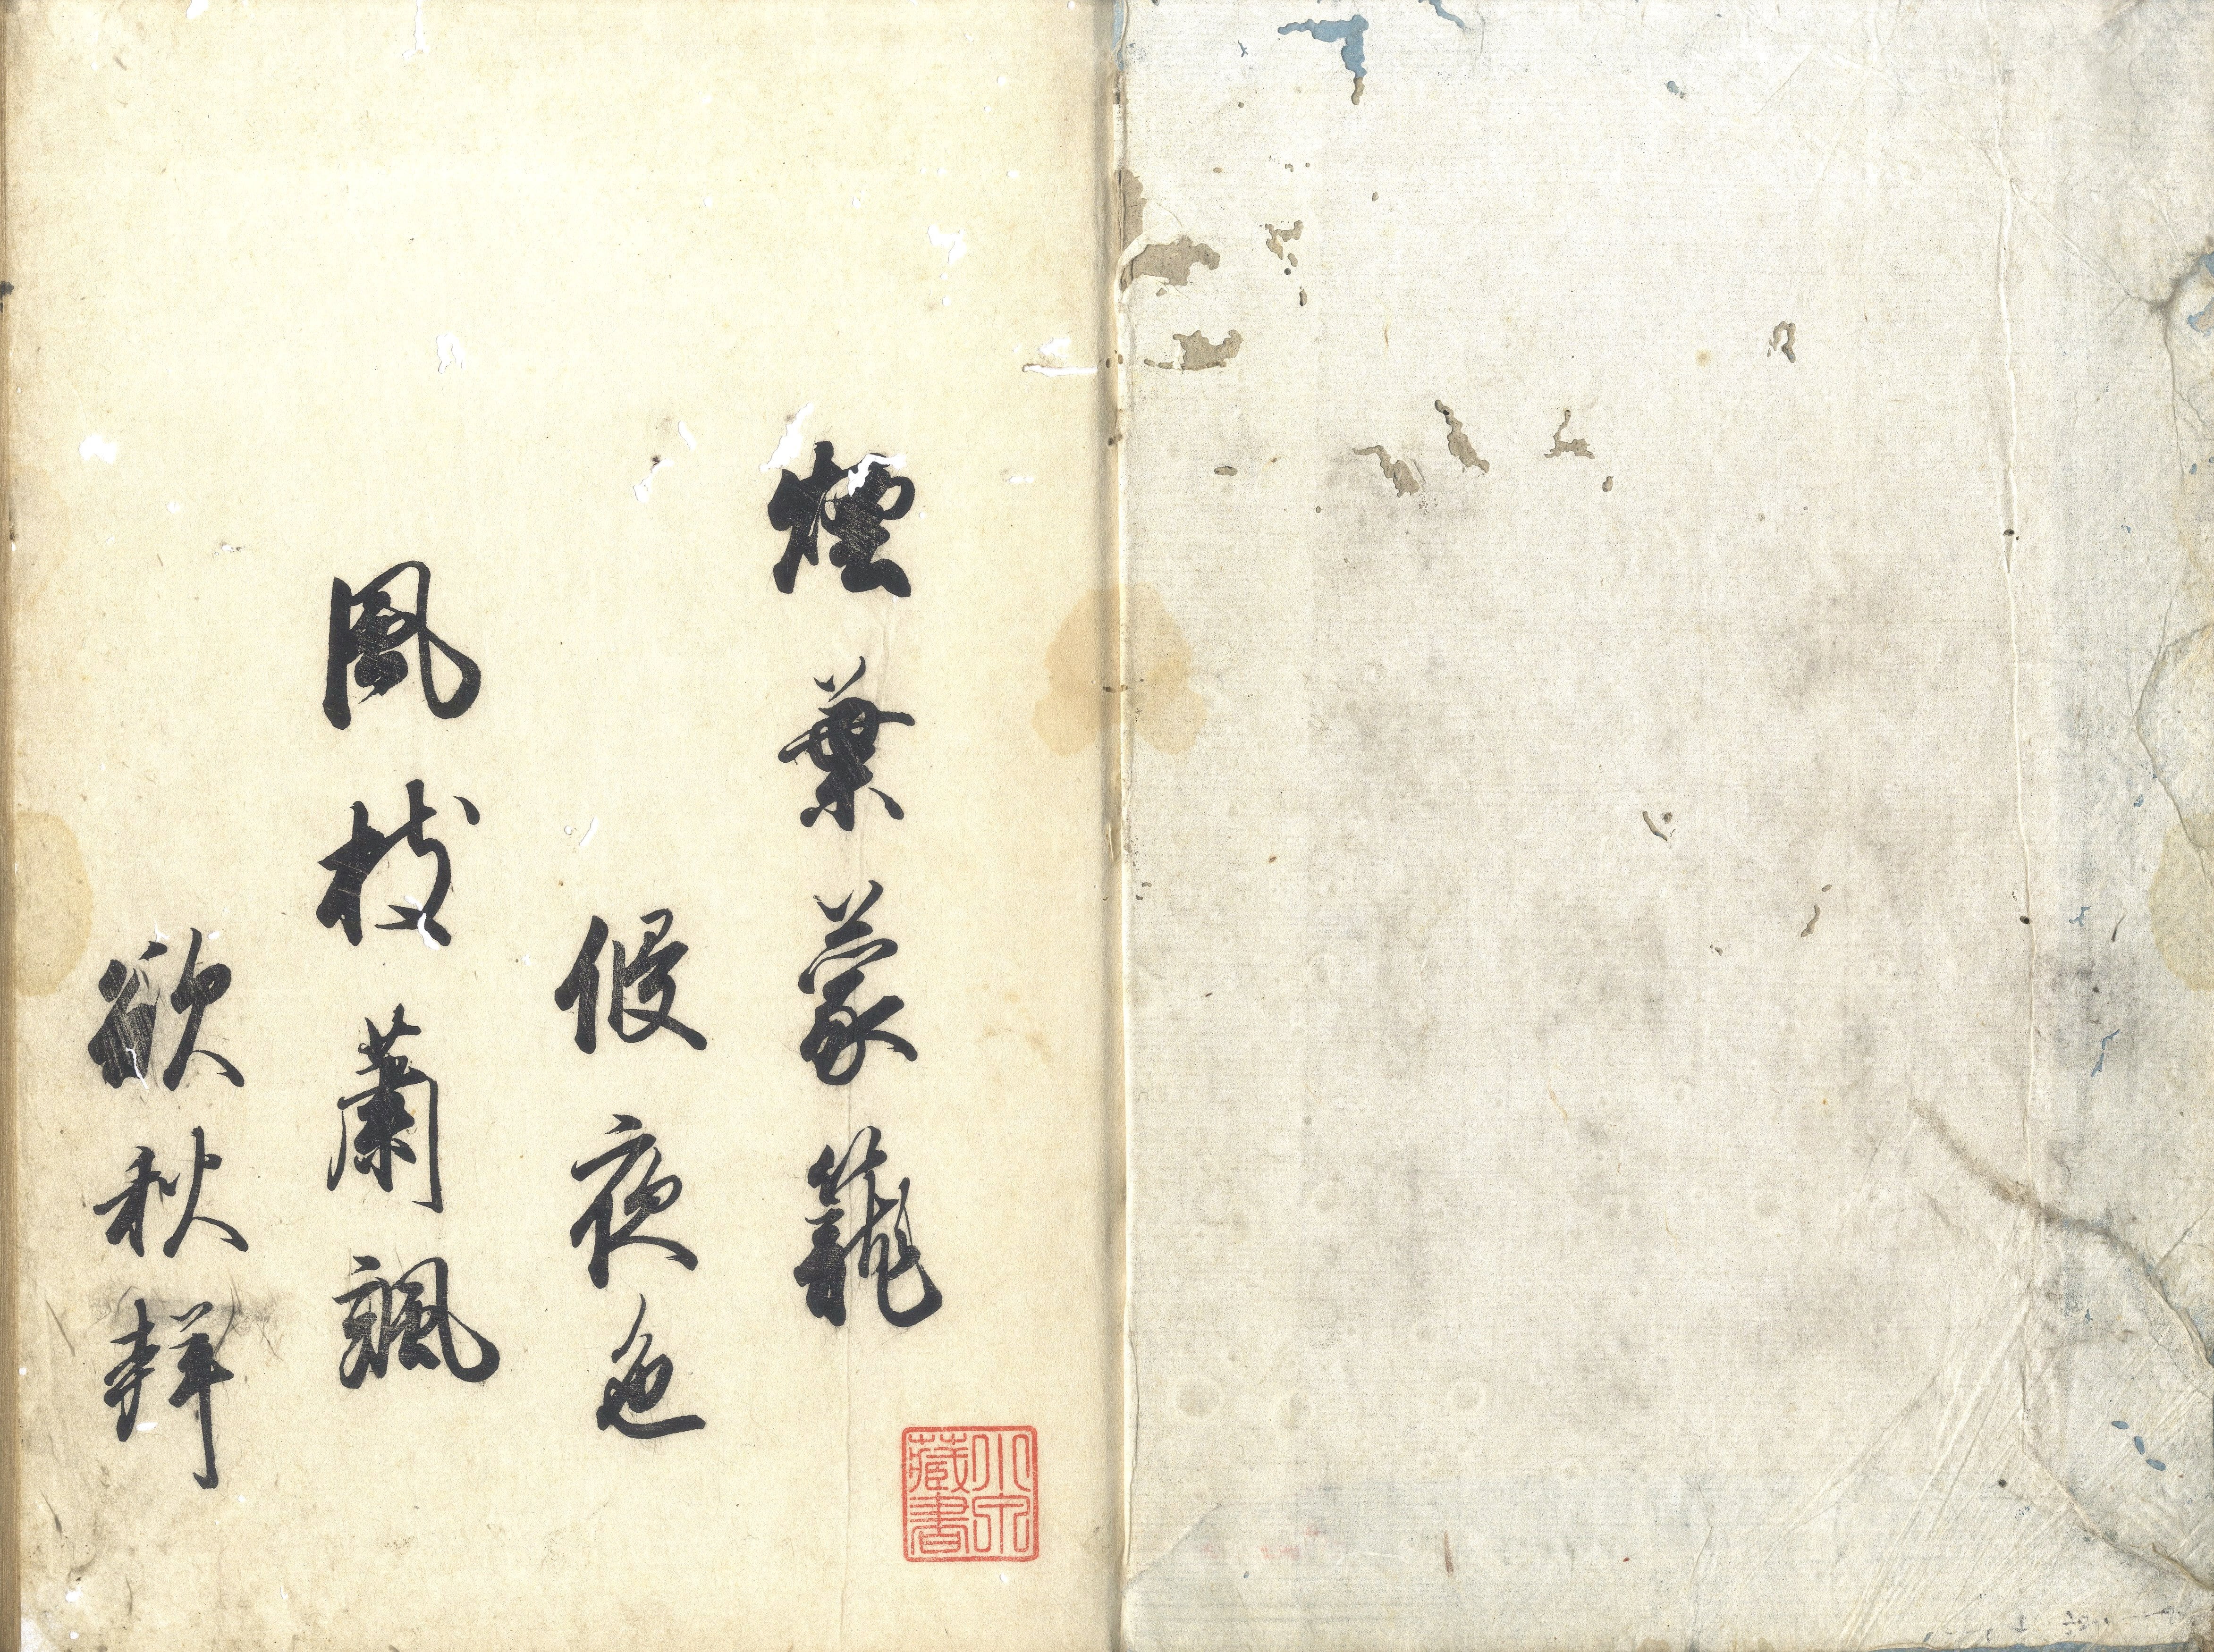 煙葉蒙籠
侵夜色
風枝蕭颯
欲秋聲
小田
藏書